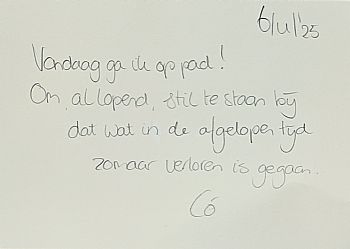 Vandaag ga ik op pad!
Om, al lopend, stil te staan bij
dat wat in de afgelopen tijd
zomaar verloren is gegaan.
Có